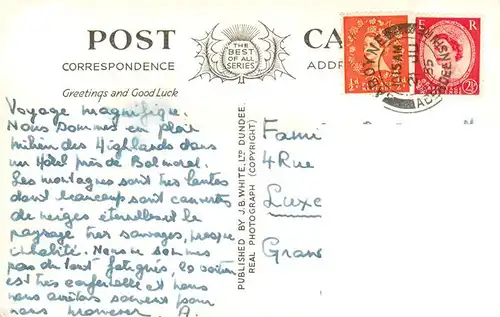 POST CA
THE
BEST
OF ALL
SERIES
CORRESPONDENCE ADDR
Greetings and Good Luck
Voyage magnifique.
Nous sommes en plein
milieu des Highlands dans
un Hôtel près de Balmoral.
Les montagnes sont très hautes
dont beaucoup sont couvertes
de neiges éternelles et le
paysage très sauvage, presque
inhabité. Nous ne sommes
pas du tout fatigués, la voiture
est très confortable et nous
nous arrêtons souvent pour
nous promener. A.
PUBLISHED BY J.B. WHITE, LTD DUNDEE.
REAL PHOTOGRAPH (COPYRIGHT)
Fami
4 Rue
Luxe
Gran
½d
E R
2½d
ABOYNE